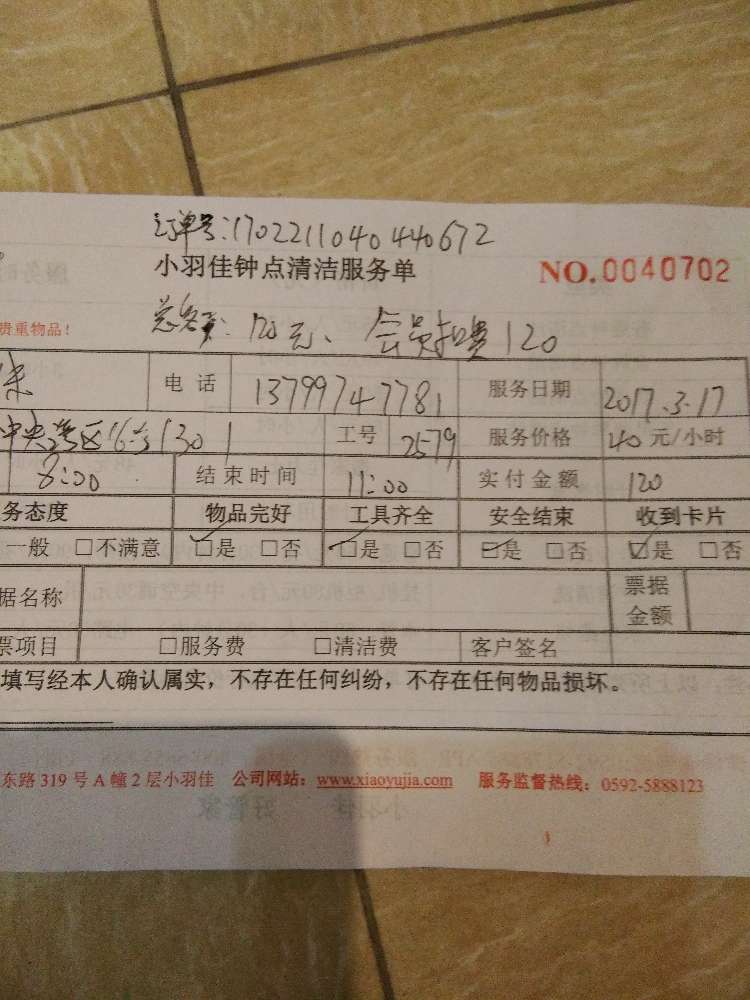 订单号:1702211040440672
小羽佳钟点清洁服务单 NO.0040702
贵重物品!
总客票:120元、会员扣费120
电话 13799747781 服务日期 2017.3.17
中央湾区16号1301 工号 2579 服务价格 40元/小时
8:00 结束时间 11:00 实付金额 120
务态度 物品完好 工具齐全 安全结束 收到卡片
一般 □不满意 ☑是 □否 ☑是 □否 ☑是 □否 ☑是 □否
据名称 票据金额
票项目 □服务费 □清洁费 客户签名
填写经本人确认属实,不存在任何纠纷,不存在任何物品损坏。
东路 319 号 A 幢 2 层小羽佳 公司网站:www.xiaoyujia.com 服务监督热线:0592-5888123